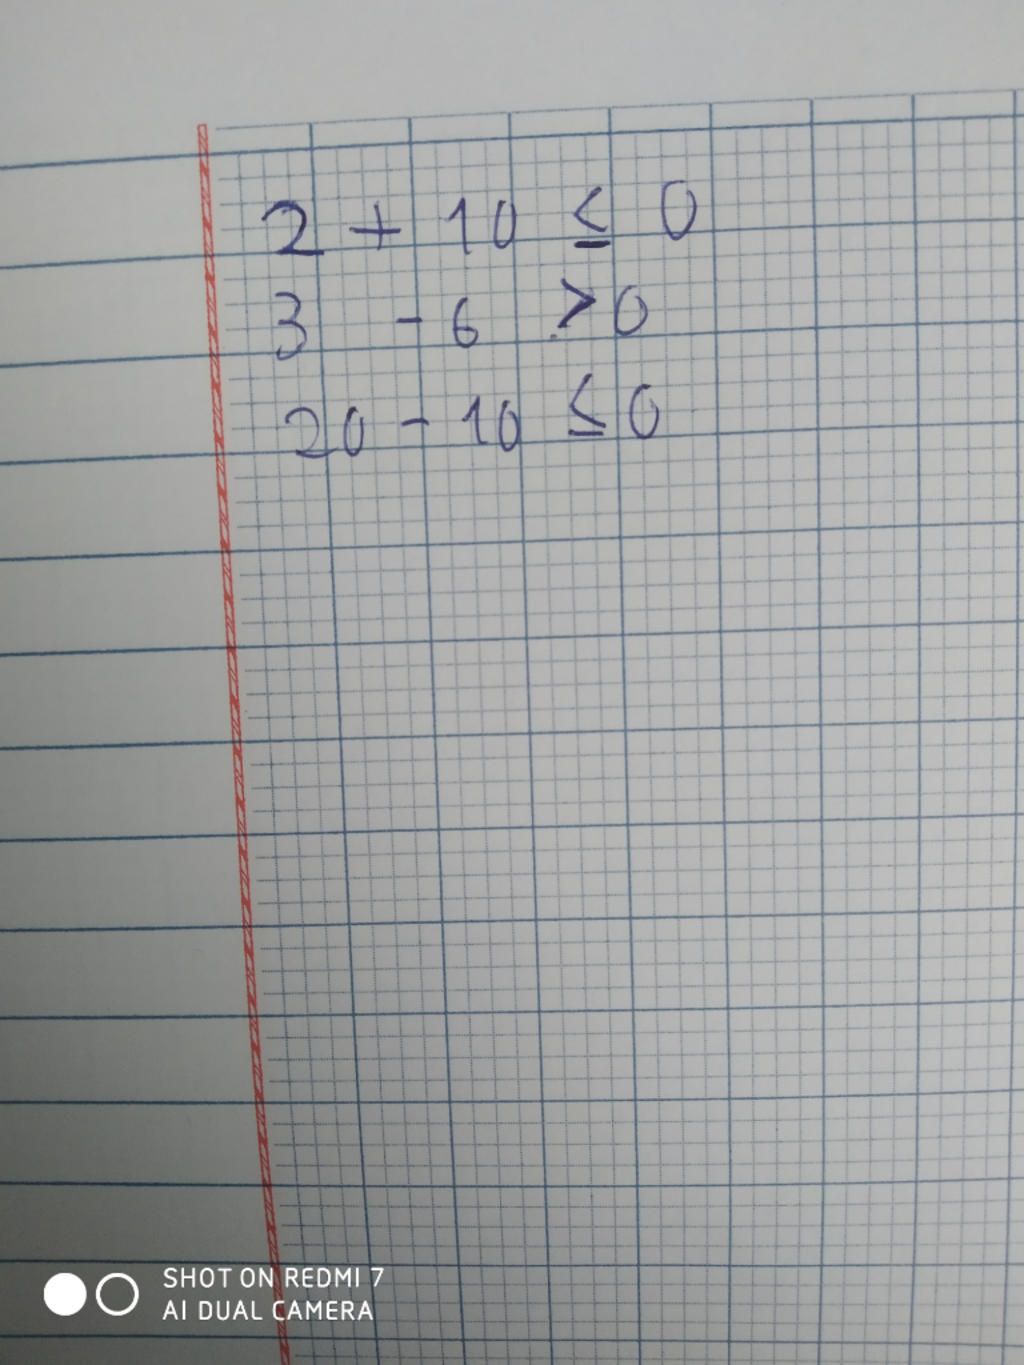 2 + 10 ≤ 0
3 - 6 > 0
20 - 10 ≤ 0
SHOT ON REDMI 7
AI DUAL CAMERA